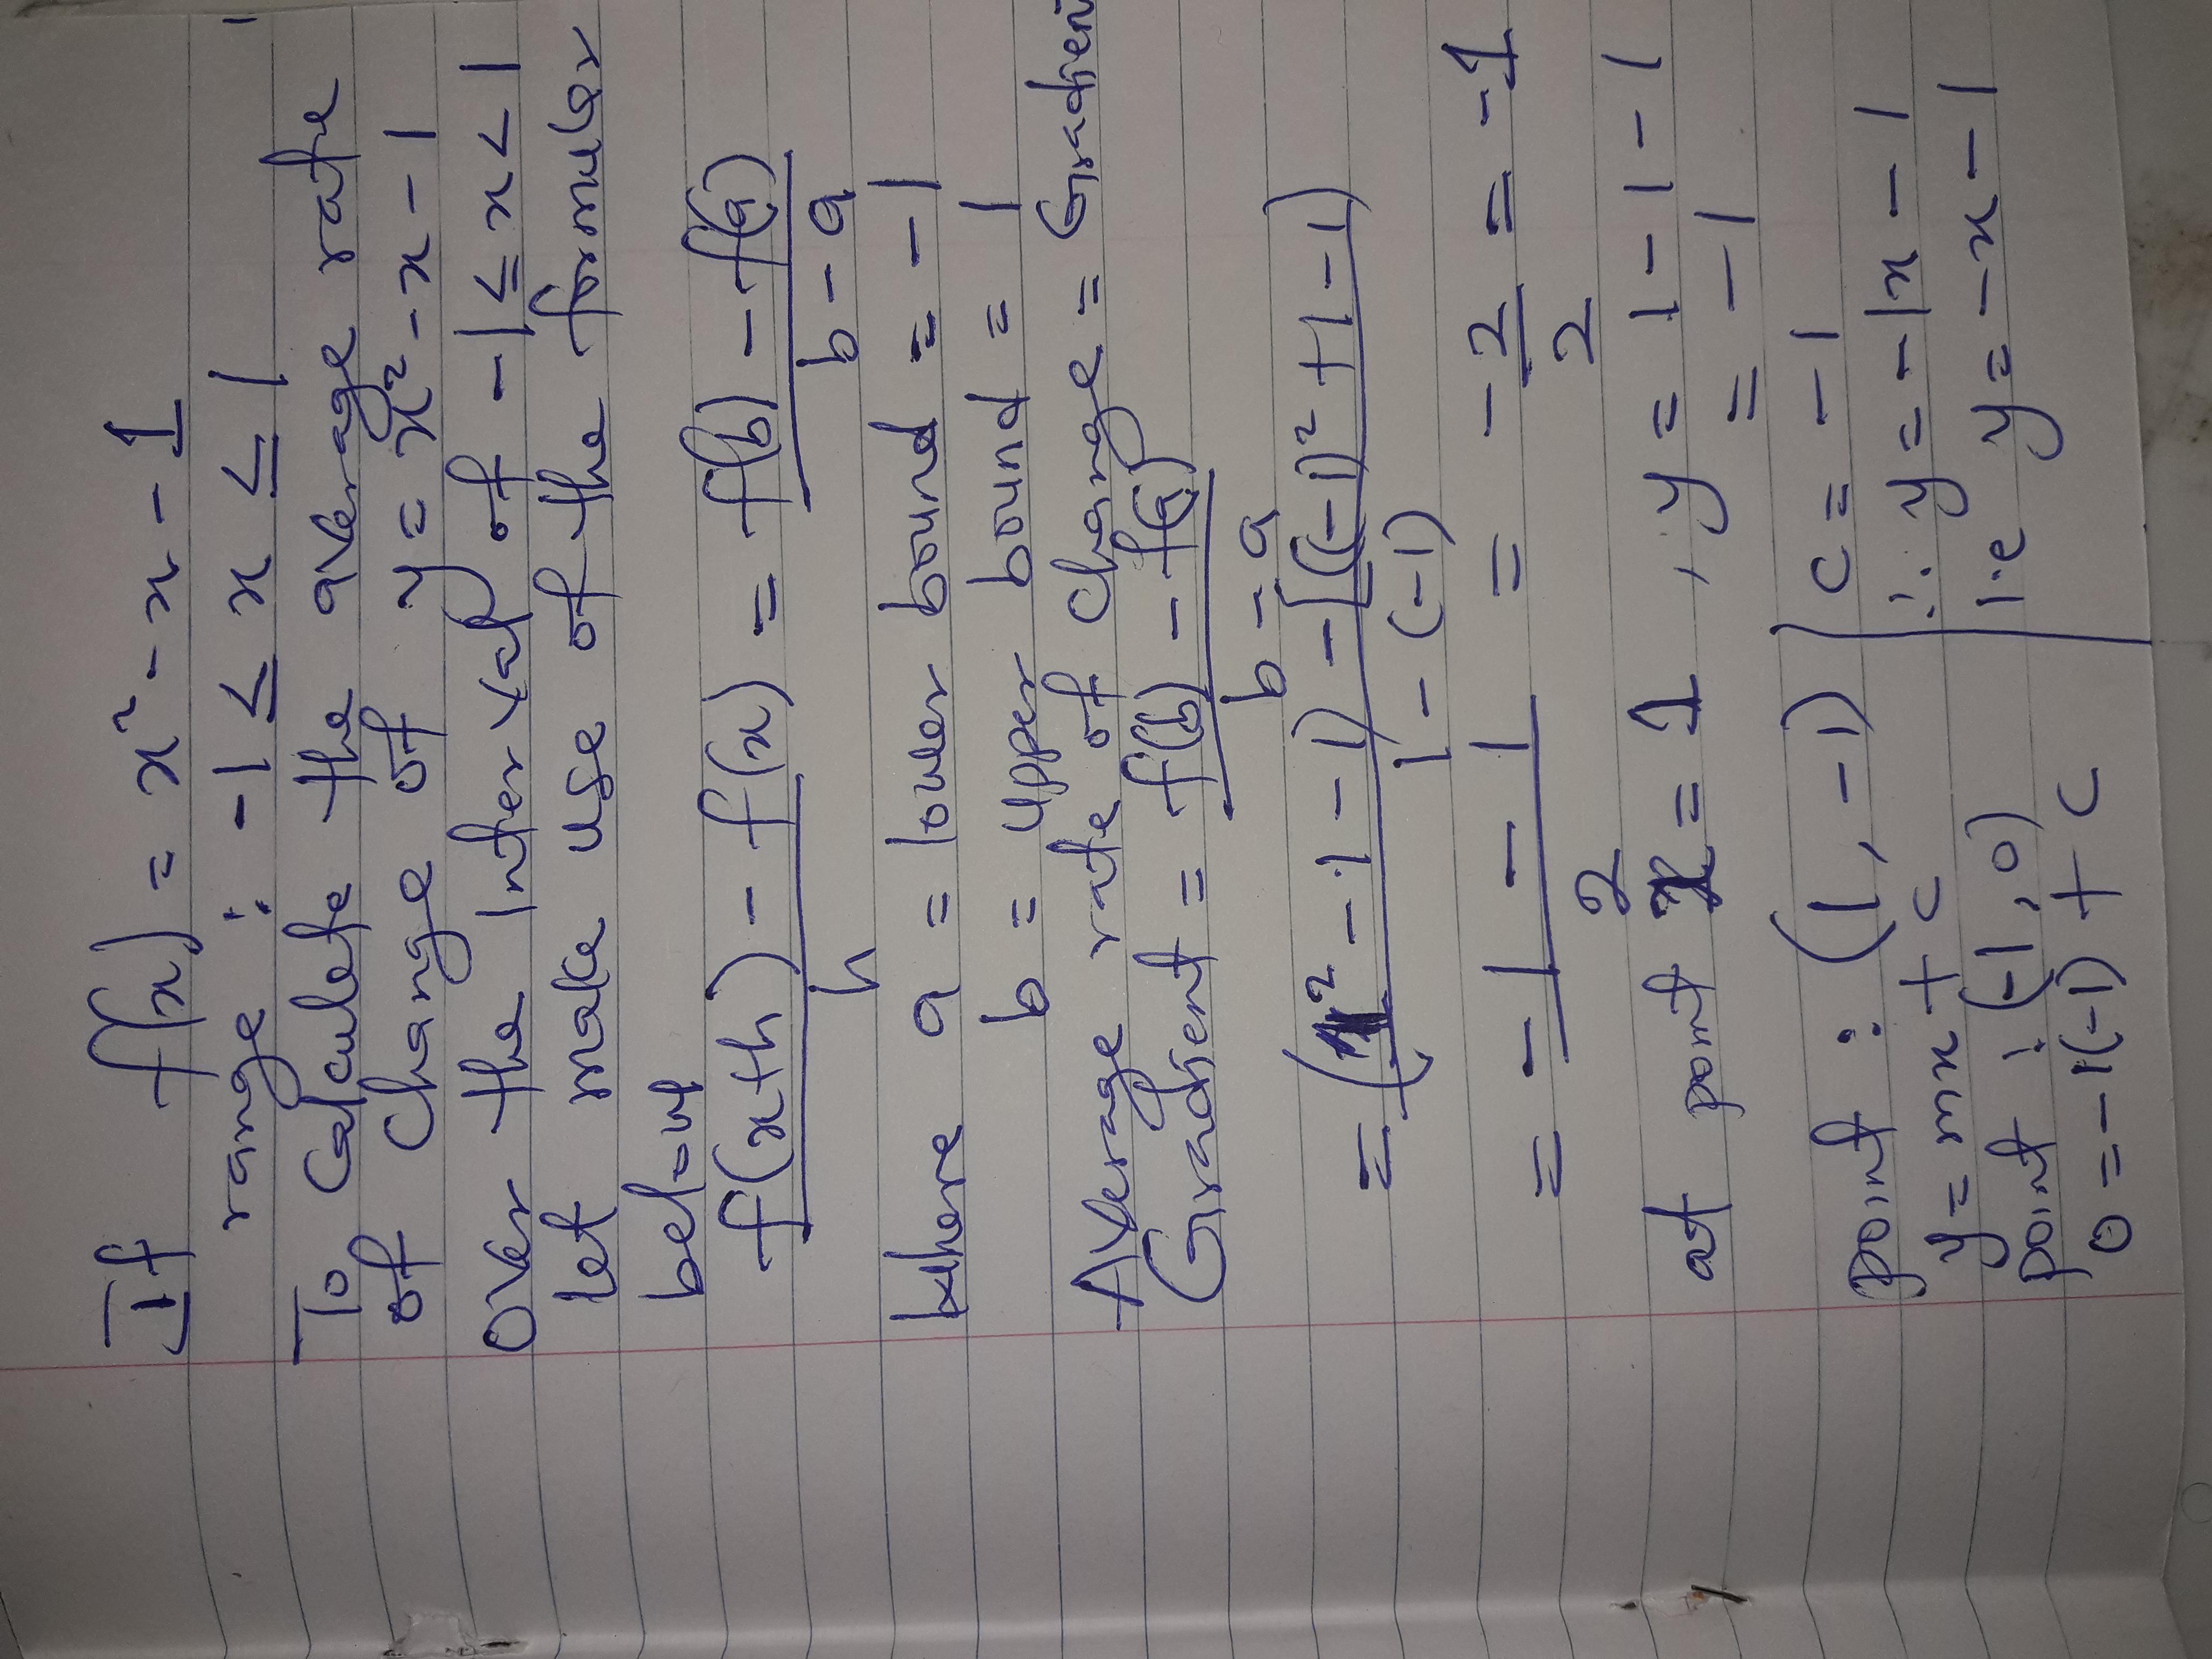 If f(x) = x² - x - 1
range : -1 ≤ x ≤ 1
To Calculate the average rate
of change of y = x² - x - 1
over the interval of -1 ≤ x < 1
let make use of the formuler
below
f(x+h) - f(x) / h = f(b) - f(a) / b - a
where a = lower bound = -1
b = upper bound = 1
Average rate of change = Gradien
Gradient = f(b) - f(a) / b - a
= (1² - 1 - 1) - [(-1)² + 1 - 1) / 1 - (-1)
= -1 - 1 / 2 = -2/2 = -1
at point x = 1 , y = 1 - 1 - 1
= -1
point : (1, -1)
y = mx + c
point : (-1, 0)
0 = -1(-1) + c
c = -1
∴ y = -1x - 1
i.e y = -x - 1